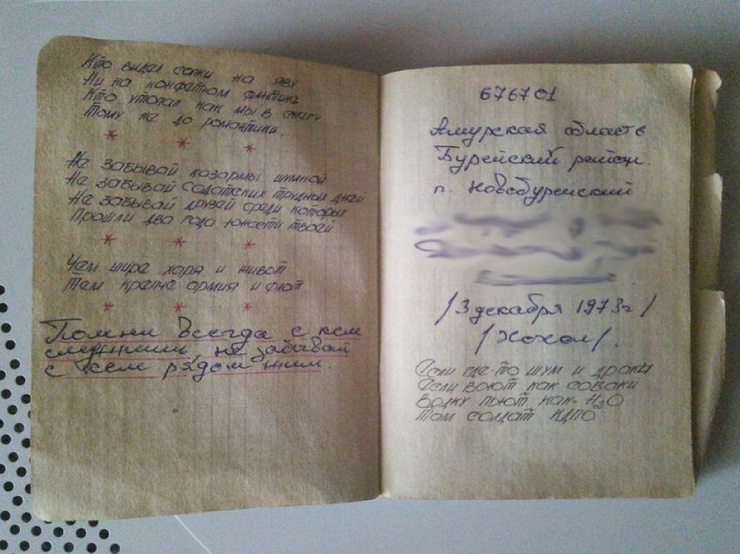 Кто видел сопки на яву
Ни на конфетном фантике
Кто утопал как мы в снегу
Тому не до романтики.
* * *
Не забывай казармы шумной
Не забывай солдатских трудных дней
Не забывай друзей среди которых
Прошли два года юности твоей
* * *
Чем шире харя и живот
Тем крепче армия и флот
* * *
Помни всегда с кем
не забывай
с кем рядом жил.
676701
Амурская область
Бурейский район.
п. Новобурейский
/3 декабря 1973г/
/Хохол/.
Если где-то шум и драки
Если воют как собаки
Водку пьют как H₂O
Там солдат КДПО